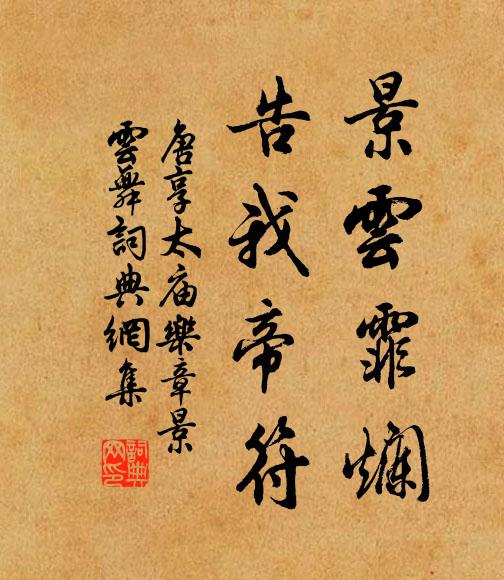 景雲霏爛
告我帝符
唐享太庙樂章景
雲舞詞典網集
詞典网印